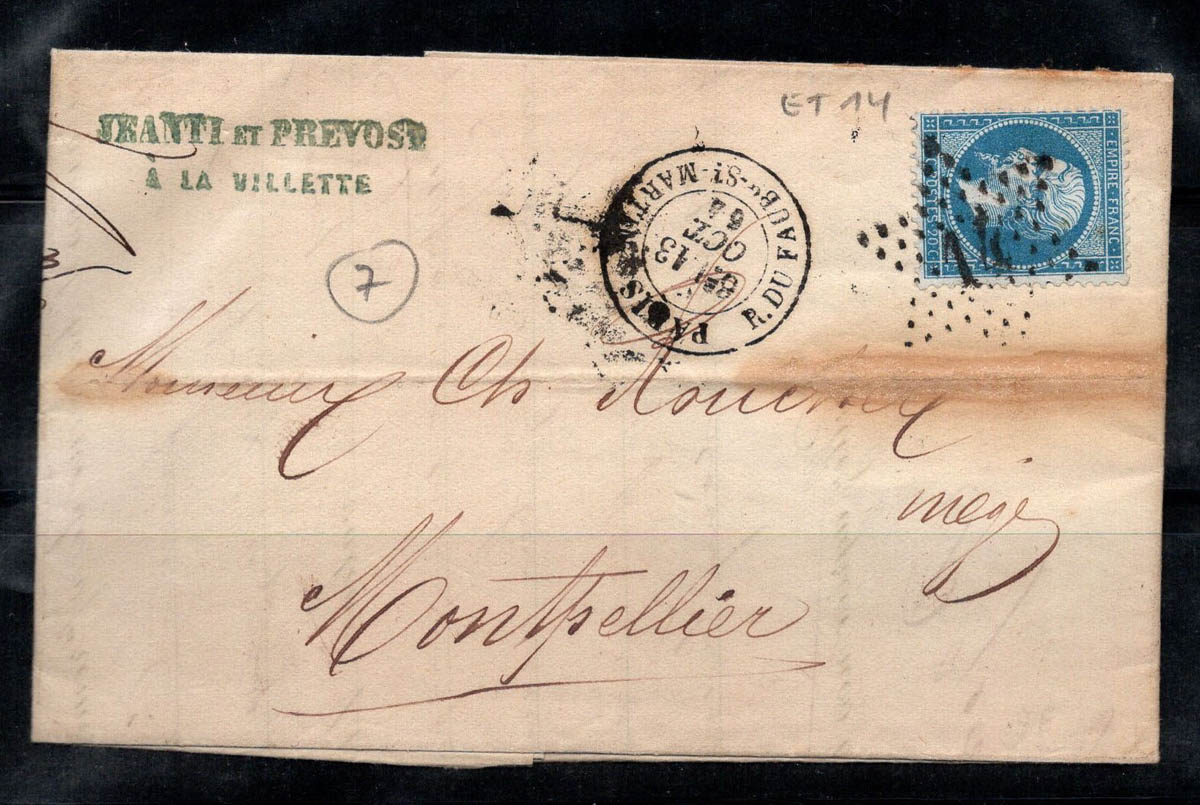 JEANTI ET PREVOST
À LA VILLETTE
ET 14
7
PARIS R. DU FAUBG-ST-MARTIN
13
OCT
64
EMPIRE·FRANC.
POSTES 20 C
14
Monsieur Ch
negt
Montpellier